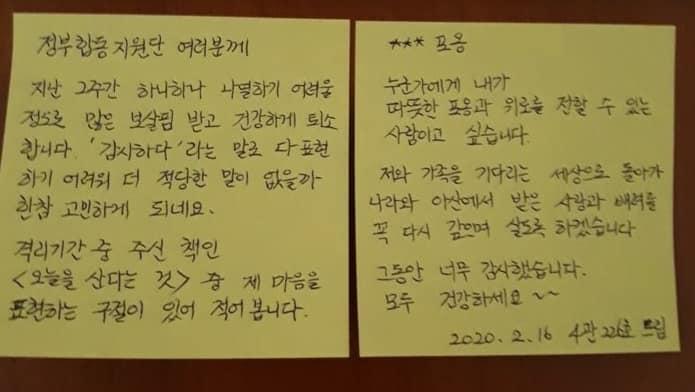 정부합동지원단 여러분께
지난 2주간 하나하나 나열하기 어려울
정도로 많은 보살핌 받고 건강하게 퇴소
합니다. '감사하다'라는 말로 다 표현
하기 어려워 더 적당한 말이 없을까
한참 고민하게 되네요.
격리기간 중 주신 책인
<오늘을 산다는 것> 중 제 마음을
표현하는 구절이 있어 적어 봅니다.
*** 포옹
누군가에게 내가
따뜻한 포옹과 위로를 전할 수 있는
사람이고 싶습니다.
저와 가족을 기다리는 세상으로 돌아가
나라와 아산에서 받은 사랑과 배려를
꼭 다시 갚으며 살도록 하겠습니다
그동안 너무 감사했습니다.
모두 건강하세요 ~~
2020. 2. 16 4관 226호 드림